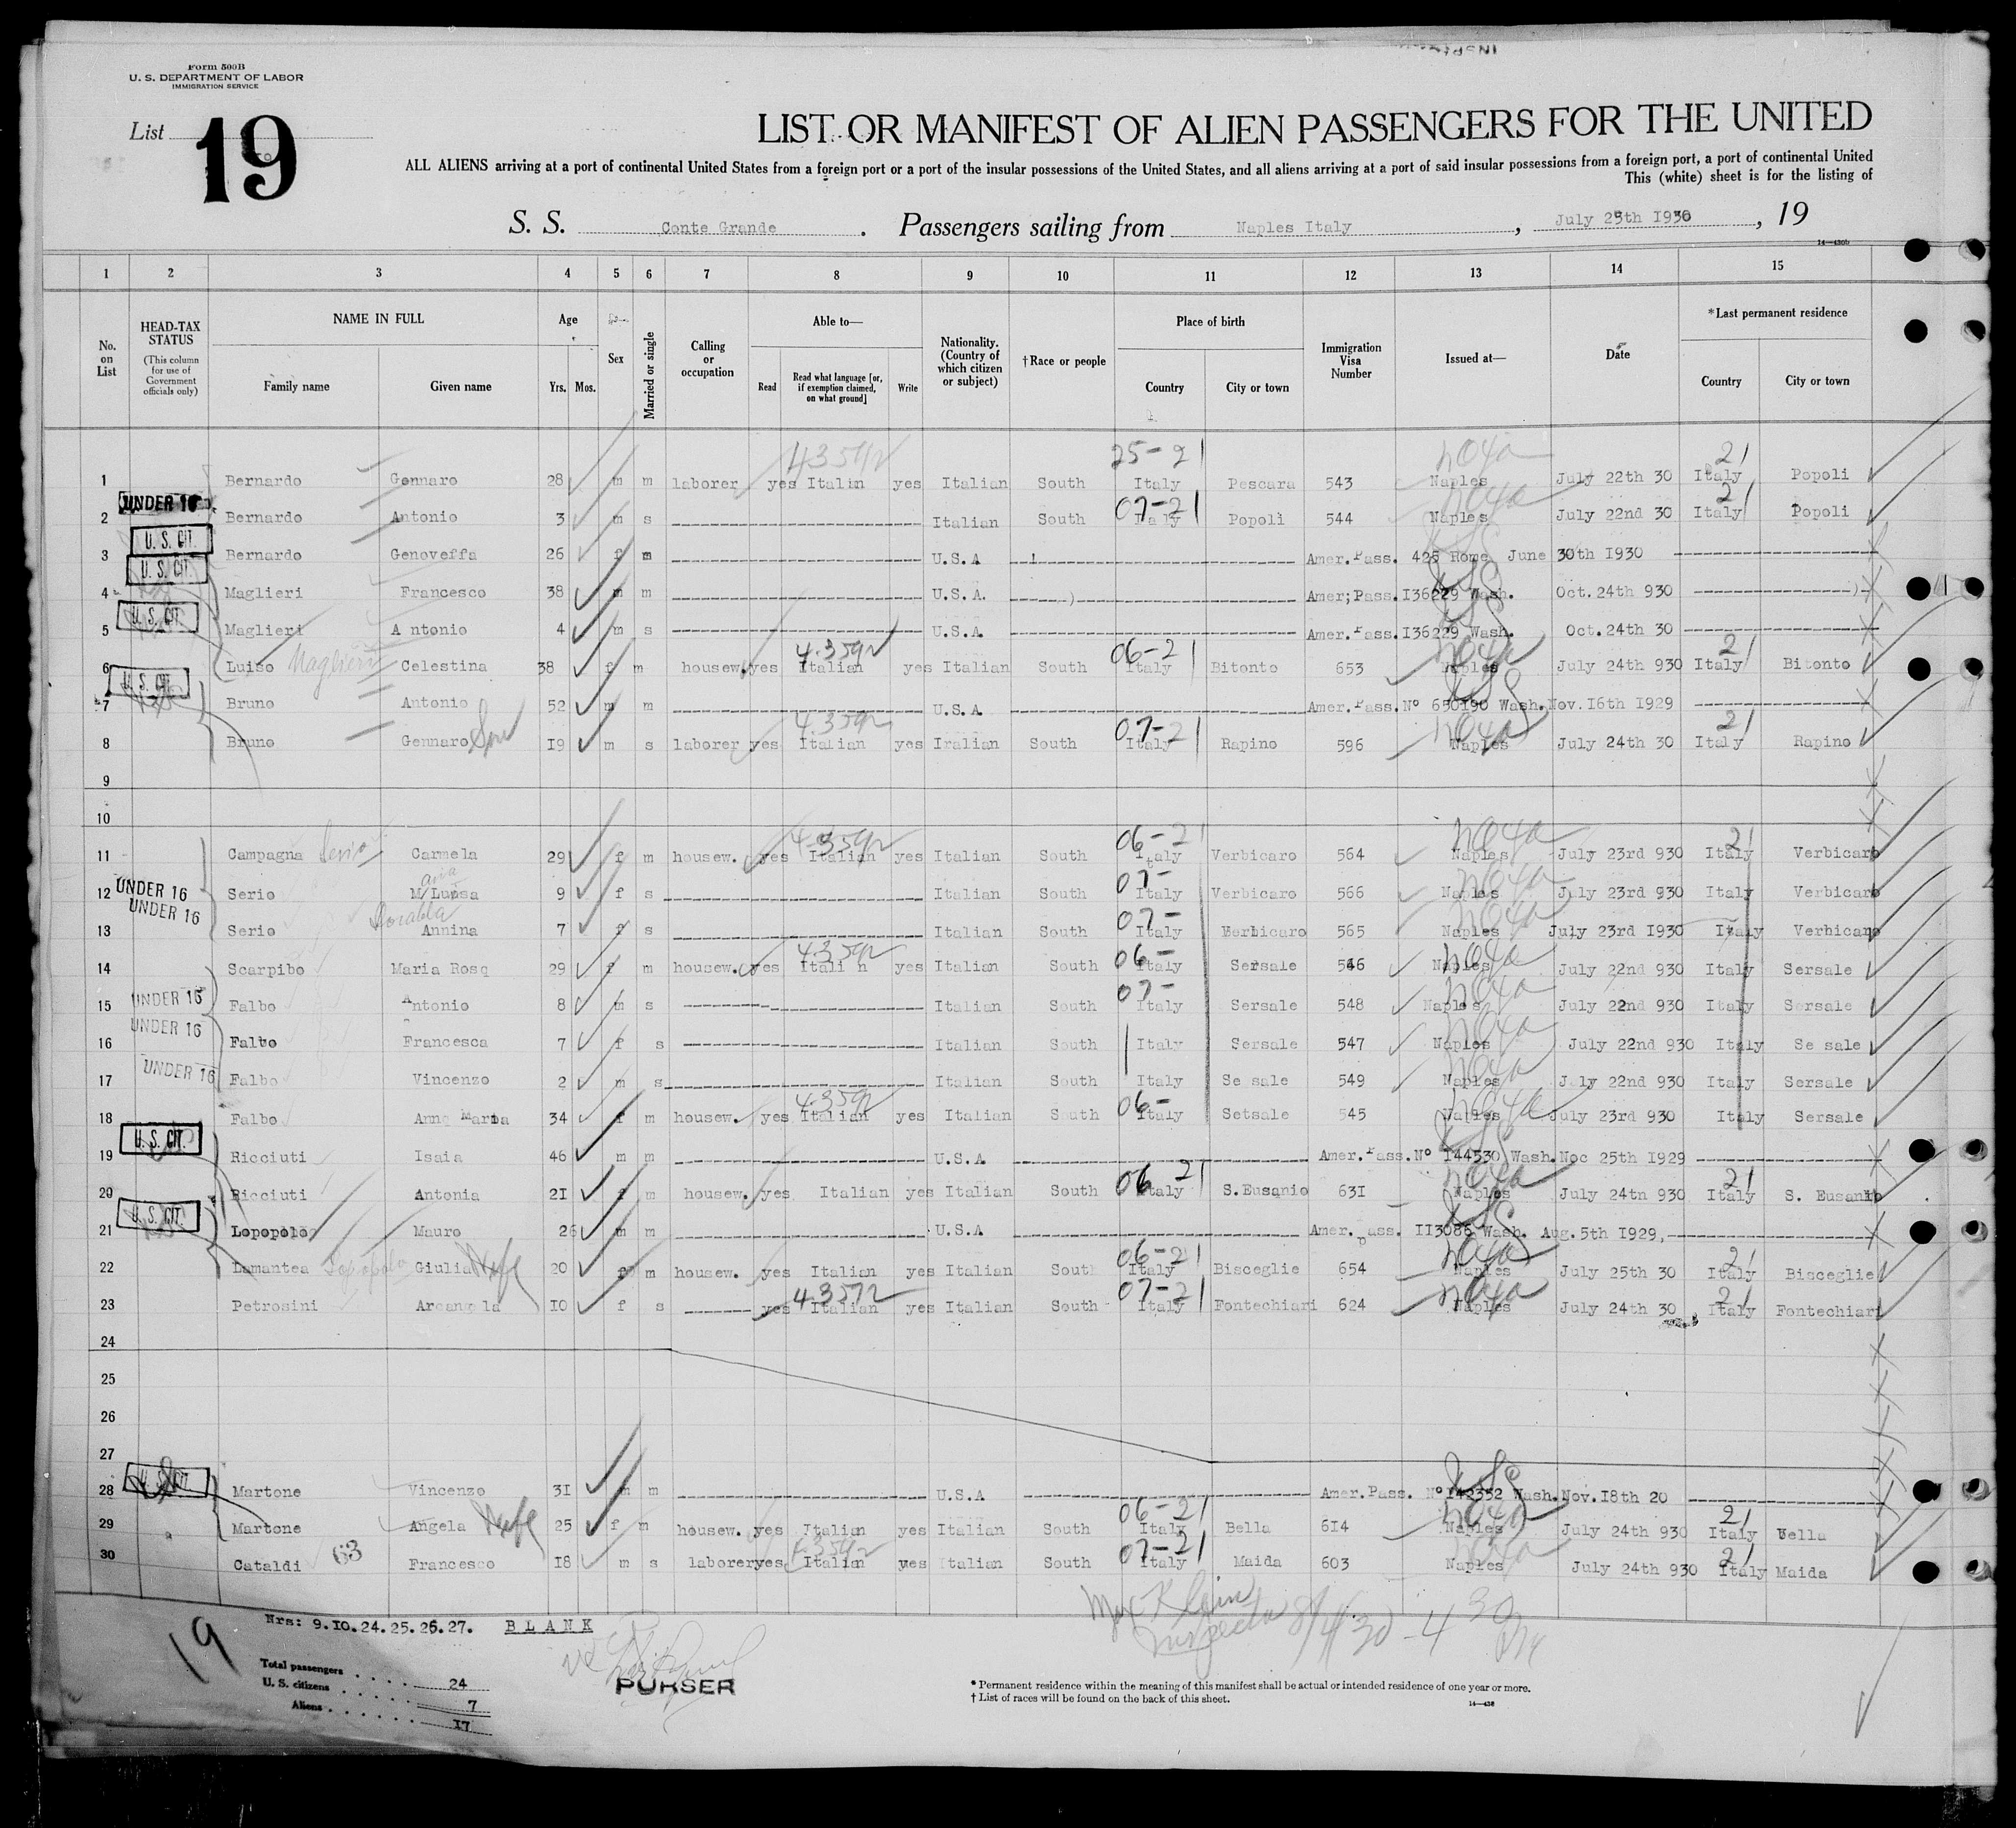 Form 500B
U. S. DEPARTMENT OF LABOR
IMMIGRATION SERVICE
List 19
LIST OR MANIFEST OF ALIEN PASSENGERS FOR THE UNITED
ALL ALIENS arriving at a port of continental United States from a foreign port or a port of the insular possessions of the United States, and all aliens arriving at a port of said insular possessions from a foreign port, a port of continental United
This (white) sheet is for the listing of
S. S. Conte Grande. Passengers sailing from Naples Italy, July 25th 1930, 19
14—430b
1 2 3 4 5 6 7 8 9 10 11 12 13 14 15
No. on List
HEAD-TAX STATUS (This column for use of Government officials only)
NAME IN FULL Family name Given name
Age Yrs. Mos.
Sex
Married or single
Calling or occupation
Able to— Read Read what language [or, if exemption claimed, on what ground] Write
Nationality. (Country of which citizen or subject)
†Race or people
Place of birth Country City or town
Immigration Visa Number
Issued at—
Date
*Last permanent residence Country City or town
1 Bernardo Gennaro 28 m m laborer yes Italin yes Italian South 25-21 Italy Pescara 543 Naples July 22th 30 21 Italy Popoli
2 UNDER 16 Bernardo Antonio 3 m s Italian South 07-21 Italy Popoli 544 Naples July 22nd 30 21 Italy Popoli
3 U. S. CIT. Bernardo Genoveffa 26 f m U.S.A Amer.Pass. 425 Rome June 30th I930
4 U. S. CIT. Maglieri Francesco 38 m m U.S.A. Amer;Pass.I36229 Wash. Oct.24th 930
5 U. S. CIT. Maglieri Antonio 4 m s U.S.A Amer.Pass.I36229 Wash. Oct.24th 30
6 Luiso Maglieri Celestina 38 f m housew. yes Italian yes Italian South 06-21 Italy Bitonto 653 Naples July 24th 930 21 Italy Bitonto
7 U. S. CIT. Bruno Antonio 52 m m U.S.A Amer.Pass.N° 650190 Wash.Nov.I6th I929
8 Bruno Gennaro Son I9 m s laborer yes Italian yes Iralian South 07-21 Italy Rapino 596 Naples July 24th 30 21 Italy Rapino
9
10
11 Campagna Serio Carmela 29 f m housew. yes Italian yes Italian South 06-21 Italy Verbicaro 564 Naples July 23rd 930 21 Italy Verbicaro
12 UNDER 16 Serio M/Luisa 9 f s Italian South 07- Italy Verbicaro 566 Naples July 23rd 930 Italy Verbicaro
13 UNDER 16 Serio Annina 7 f s Italian South 07- Italy Verbicaro 565 Naples July 23rd I930 Italy Verbicaro
14 Scarpibo Maria Rosa 29 f m housew. yes Itali n yes Italian South 06- Italy Sersale 546 Naples July 22nd 930 Italy Sersale
15 UNDER 16 Falbo Antonio 8 m s Italian South 07- Italy Sersale 548 Naples July 22nd 930 Italy Sersale
16 UNDER 16 Falbo Francesca 7 f s Italian South Italy Sersale 547 Naples July 22nd 930 Italy Se sale
17 UNDER 16 Falbo Vincenzo 2 m s Italian South Italy Se sale 549 Naples July 22nd 930 Italy Sersale
18 Falbo Anna Maria 34 f m housew. yes Italian yes Italian South 06- Italy Setsale 545 Naples July 23rd 930 Italy Sersale
19 U. S. CIT. Ricciuti Isaia 46 m m U.S.A Amer.Pass.N° I44530 Wash.Noc 25th I929
20 Ricciuti Antonia 2I f m housew. yes Italian yes Italian South 06 21 Italy S.Eusanio 63I Naples July 24tn 930 21 Italy S. Eusanio
21 U. S. CIT. Lopopolo Mauro 26 m m U.S.A Amer.pass. II3086 Wash. Aug.5th I929,
22 Lamantea Lopopolo Giulia Wife 20 f m housew. yes Italian yes Italian South 06-21 Italy Bisceglie 654 Naples July 25th 30 21 Italy Bisceglie
23 Petrosini Arcangela I0 f s yes Italian yes Italian South 07-21 Italy Fontechiari 624 Naples July 24th 30 21 Italy Fontechiari
24
25
26
27
28 U. S. CIT. Martone Vincenzo 3I m m U.S.A Amer.Pass. N° I42352 Wash.Nov.I8th 20
29 Martone Angela Wife 25 f m housew. yes Italian yes Italian South 06-21 Italy Bella 6I4 Naples July 24th 930 21 Italy Bella
30 Cataldi 63 Francesco I8 m s laborer yes Italian yes Italian South 07-21 Italy Maida 603 Naples July 24th 930 21 Italy Maida
Nrs: 9.I0.24.25.26.27. BLANK
19
Max Klein
Inspector 8/4/30 - 4 30 PM
Total passengers 24
U. S. citizens 7
Aliens I7
PURSER
* Permanent residence within the meaning of this manifest shall be actual or intended residence of one year or more.
† List of races will be found on the back of this sheet.
14—430